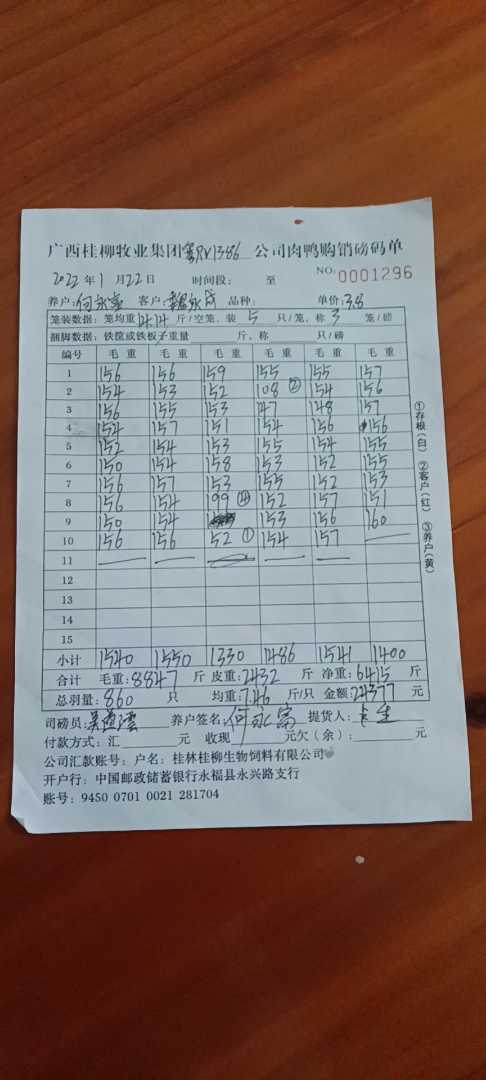 广西桂柳牧业集团 公司肉鸭购销磅码单
2022年1月22日 时间段: 至 NO: 0001296
养户:何永富 客户: 品种: 单价:3.8
笼装数据: 笼均重14.14斤/空笼, 装5只/笼, 称3笼/磅
捆脚数据: 铁筐或铁板子重量 斤, 称 只/磅
编号 毛重 毛重 毛重 毛重 毛重 毛重
1 156 156 159 155 155 157
2 154 153 152 108② 154 156
3 156 155 153 147 148 157
4 154 157 151 154 156 156
5 152 154 153 155 154 155
6 150 154 158 153 152 155
7 156 157 153 155 152 153
8 156 154 199④ 152 157 151
9 150 154 153 156 160
10 156 156 52① 154 157
11
12
13
14
15
小计 1540 1550 1330 1486 1541 1400
合计 毛重:8847斤 皮重:2432斤 净重:6415斤
总羽量:860只 均重:7.46斤/只 金额:24377元
司磅员: 养户签名:何永富 提货人:
付款方式: 汇 元 收现 元欠(余): 元
公司汇款账号: 户名: 桂林桂柳生物饲料有限公司
开户行: 中国邮政储蓄银行永福县永兴路支行
账号: 9450 0701 0021 281704
①存根(白) ②客户(红) ③养户(黄)